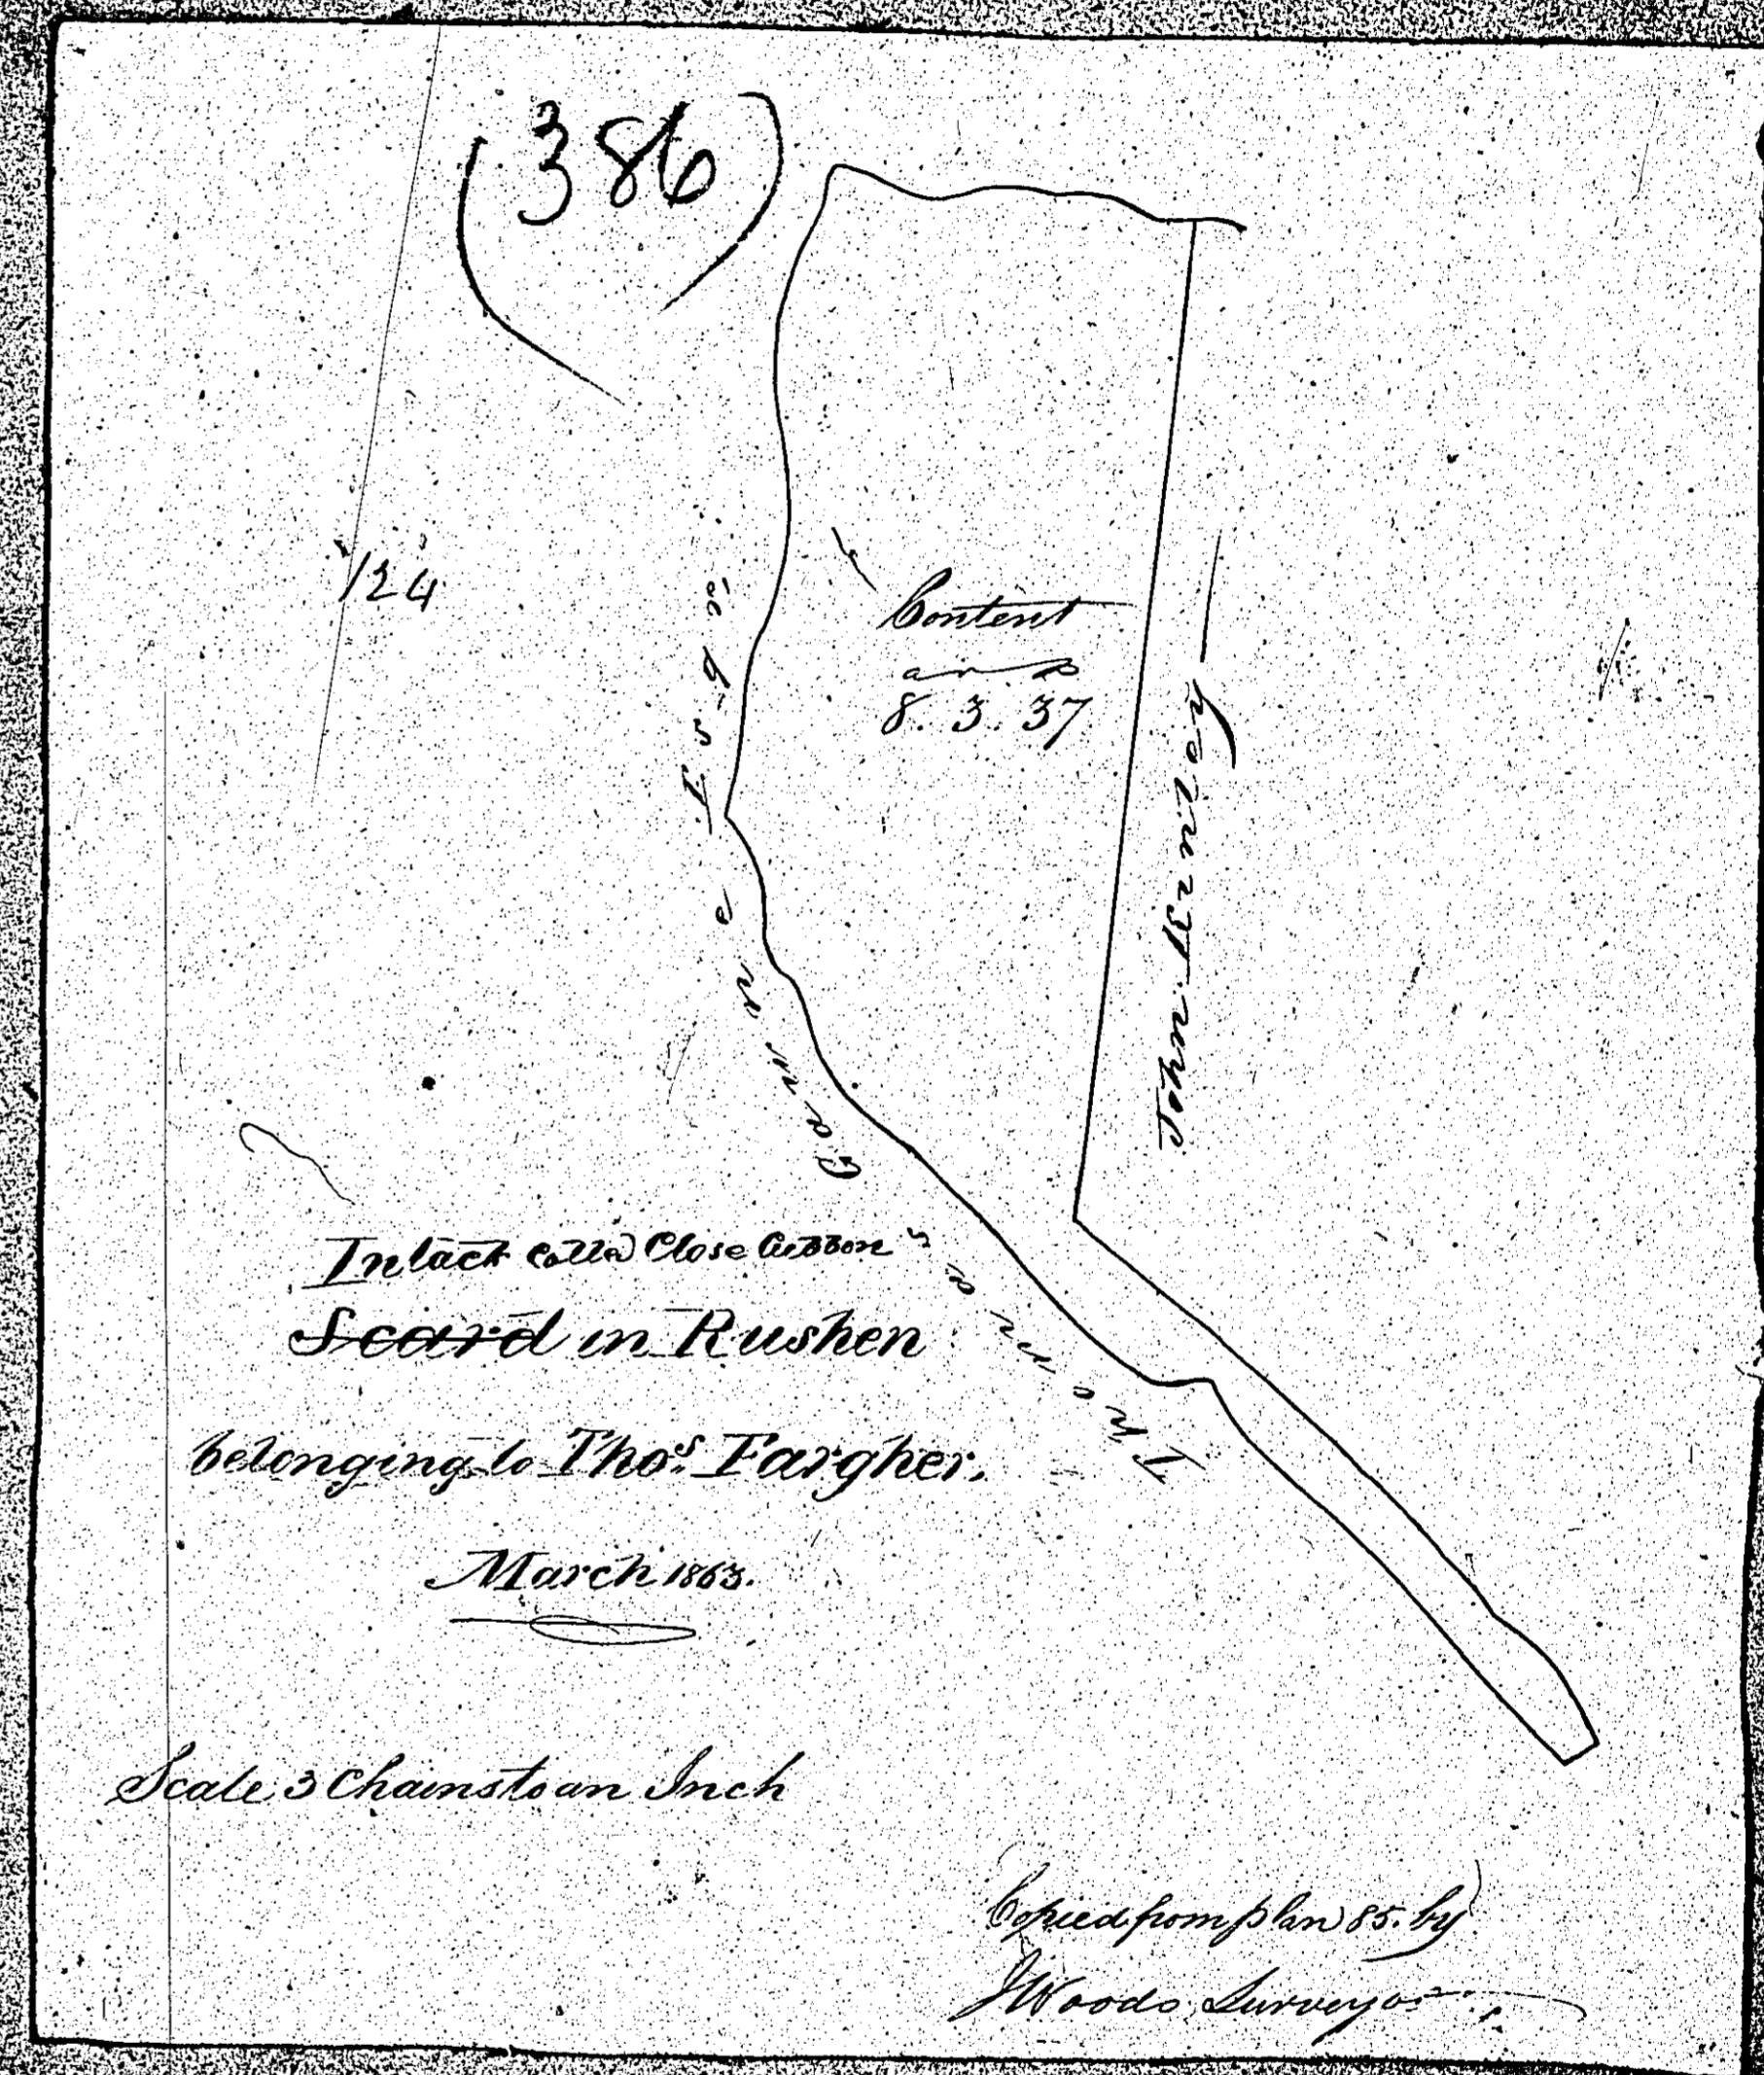 (386)
124
Content
a r p
8. 3. 37
John Kinley
Thomas Gawne Esqre
Intack Called Close Gibbon
Scard in Rushen
belonging to Thos. Fargher.
March 1863.
Scale 3 Chains to an Inch
Copied from plan 85. by
J Woods Surveyor